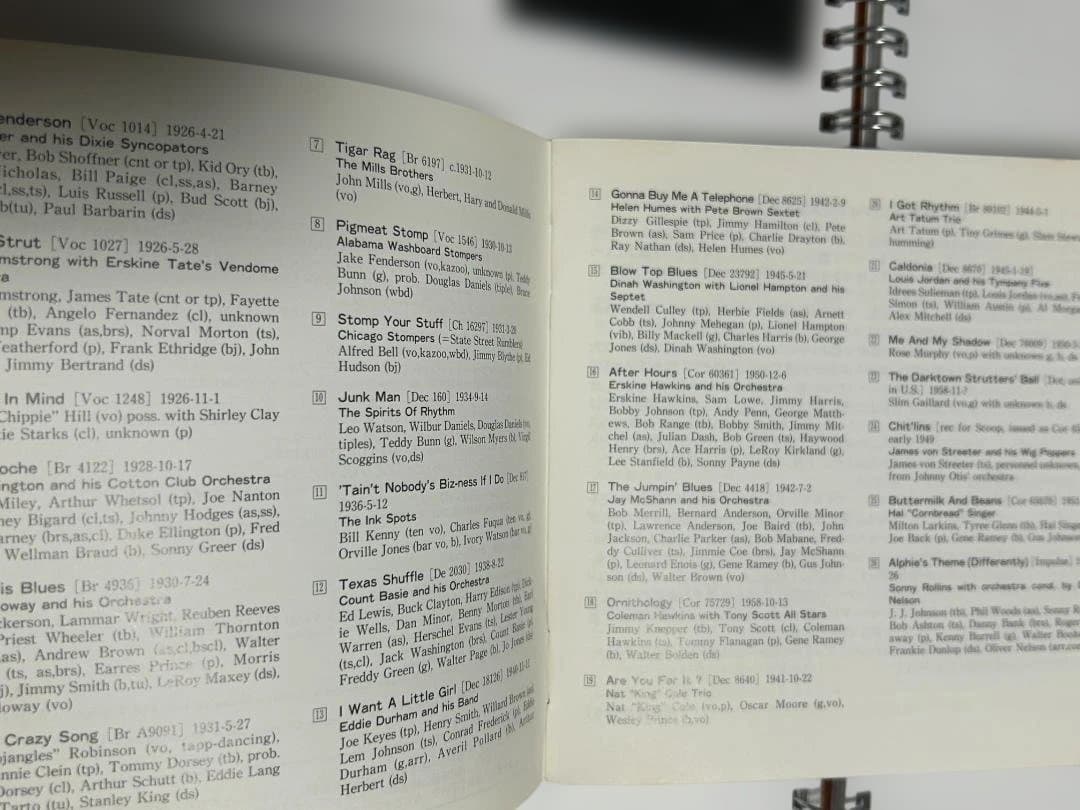 enderson [Voc 1014] 1926-4-21
er and his Dixie Syncopators
ver, Bob Shoffner (cnt or tp), Kid Ory (tb),
icholas, Bill Paige (cl,ss,as), Barney
cl,ss,ts), Luis Russell (p), Bud Scott (bj),
b(tu), Paul Barbarin (ds)
Strut [Voc 1027] 1926-5-28
mstrong with Erskine Tate's Vendome
a
mstrong, James Tate (cnt or tp), Fayette
(tb), Angelo Fernandez (cl), unknown
mp Evans (as,brs), Norval Morton (ts),
eatherford (p), Frank Ethridge (bj), John
Jimmy Bertrand (ds)
In Mind [Voc 1248] 1926-11-1
"Chippie" Hill (vo) poss. with Shirley Clay
ie Starks (cl), unknown (p)
oche [Br 4122] 1928-10-17
ington and his Cotton Club Orchestra
Miley, Arthur Whetsol (tp), Joe Nanton
ney Bigard (cl,ts), Johnny Hodges (as,ss),
arney (brs,as,cl), Duke Ellington (p), Fred
Wellman Braud (b), Sonny Greer (ds)
is Blues [Br 4936] 1930-7-24
oway and his Orchestra
ckerson, Lammar Wright, Reuben Reeves
Priest Wheeler (tb), William Thornton
as), Andrew Brown (as,cl,bscl), Walter
(ts, as,brs), Earres Prince (p), Morris
j), Jimmy Smith (b,tu), LeRoy Maxey (ds),
loway (vo)
Crazy Song [Br A9091] 1931-5-27
ojangles" Robinson (vo, tapp-dancing),
nnie Clein (tp), Tommy Dorsey (tb), prob.
Dorsey (cl), Arthur Schutt (b), Eddie Lang
Tarto (tu), Stanley King (ds)
7 Tigar Rag [Br 6197] c.1931-10-12
The Mills Brothers
John Mills (vo,g), Herbert, Hary and Donald Mills
(vo)
8 Pigmeat Stomp [Voc 1546] 1930-10-13
Alabama Washboard Stompers
Jake Fenderson (vo,kazoo), unknown (p), Teddy
Bunn (g), prob. Douglas Daniels (tiple), Bruce
Johnson (wbd)
9 Stomp Your Stuff [Ch 16297]
Chicago Stompers (=State Street Ramblers)
Alfred Bell (vo,kazoo,wbd), Jimmy Blythe (p), Ed
Hudson (bj)
10 Junk Man [Dec 160] 1934-9-14
The Spirits Of Rhythm
Leo Watson, Wilbur Daniels, Douglas Daniels (vo,
tiples), Teddy Bunn (g), Wilson Myers (b), Virgil
Scoggins (vo,ds)
11 'Tain't Nobody's Biz-ness If I Do [Dec 817]
1936-5-12
The Ink Spots
Bill Kenny (ten vo), Charles Fuqua (ten vo, g),
Orville Jones (bar vo, b), Ivory Watson (bar vo, g)
12 Texas Shuffle [De 2030] 1938-8-22
Count Basie and his Orchestra
Ed Lewis, Buck Clayton, Harry Edison (tp), Dick-
ie Wells, Dan Minor, Benny Morton (tb), Earl
Warren (as), Herschel Evans (ts), Lester Young
(ts,cl), Jack Washington (brs), Count Basie (p),
Freddy Green (g), Walter Page (b), Jo Jones (ds)
13 I Want A Little Girl [Dec 18126] 1940-11-11
Eddie Durham and his Band
Joe Keyes (tp), Henry Smith, Willard Brown (as),
Lem Johnson (ts), Conrad Frederick (p), Eddie
Durham (g,arr), Averil Pollard (b), Arthur
Herbert (ds)
14 Gonna Buy Me A Telephone [Dec 8625] 1942-2-9
Helen Humes with Pete Brown Sextet
Dizzy Gillespie (tp), Jimmy Hamilton (cl), Pete
Brown (as), Sam Price (p), Charlie Drayton (b),
Ray Nathan (ds), Helen Humes (vo)
15 Blow Top Blues [Dec 23792] 1945-5-21
Dinah Washington with Lionel Hampton and his
Septet
Wendell Culley (tp), Herbie Fields (as), Arnett
Cobb (ts), Johnny Mehegan (p), Lionel Hampton
(vib), Billy Mackell (g), Charles Harris (b), George
Jones (ds), Dinah Washington (vo)
16 After Hours [Cor 60361] 1950-12-6
Erskine Hawkins and his Orchestra
Erskine Hawkins, Sam Lowe, Jimmy Harris,
Bobby Johnson (tp), Andy Penn, George Matth-
ews, Bob Range (tb), Bobby Smith, Jimmy Mit-
chel (as), Julian Dash, Bob Green (ts), Haywood
Henry (brs), Ace Harris (p), LeRoy Kirkland (g),
Lee Stanfield (b), Sonny Payne (ds)
17 The Jumpin' Blues [Dec 4418] 1942-7-2
Jay McShann and his Orchestra
Bob Merrill, Bernard Anderson, Orville Minor
(tp), Lawrence Anderson, Joe Baird (tb), John
Jackson, Charlie Parker (as), Bob Mabane, Fred-
dy Culliver (ts), Jimmie Coe (brs), Jay McShann
(p), Leonard Enois (g), Gene Ramey (b), Gus John-
son (ds), Walter Brown (vo)
18 Ornithology [Cor 75729] 1958-10-13
Coleman Hawkins with Tony Scott All Stars
Jimmy Knepper (tb), Tony Scott (cl), Coleman
Hawkins (ts), Tommy Flanagan (p), Gene Ramey
(b), Walter Bolden (ds)
19 Are You For It ? [Dec 8640] 1941-10-22
Nat "King" Cole Trio
Nat "King" Cole (vo,p), Oscar Moore (g,vo),
Wesley Prince (b,vo)
I Got Rhythm [Br
Art Tatum Trio
Art Tatum (p), Tiny Grimes (g), Slam
humming)
Caldonia [Dec 8670]
Louis Jordan and his Tympany Five
Idrees Sulieman (tp), Louis Jordan
Simon (ts), William Austin (p), Al
Alex Mitchell (ds)
Me And My Shadow [Dec
Rose Murphy (vo,p) with unknown g, b, ds
The Darktown Strutters' Ball
in U.S.] 1958-11-?
Slim Gaillard (vo,g) with unknown b, ds
24 Chit'lins [rec for Scoop, issued as Cor
early 1949
James von Streeter and his Wig Poppers
James von Streeter (ts), personnel unknown,
from Johnny Otis' orchestra
25 Buttermilk And Beans [Cor
Hal "Cornbread" Singer
Milton Larkins, Tyree Glenn (tb), Hal Singer
Joe Back (p), Gene Ramey (b), Gus Johnson
Alphie's Theme (Differently) [Impulse]
26
Sonny Rollins with orchestra cond. by
Nelson
J. J. Johnson (tb), Phil Woods (as), Sonny
Bob Ashton (ts), Danny Bank (brs), Roger
away (p), Kenny Burrell (g), Walter
Frankie Dunlop (ds), Oliver Nelson